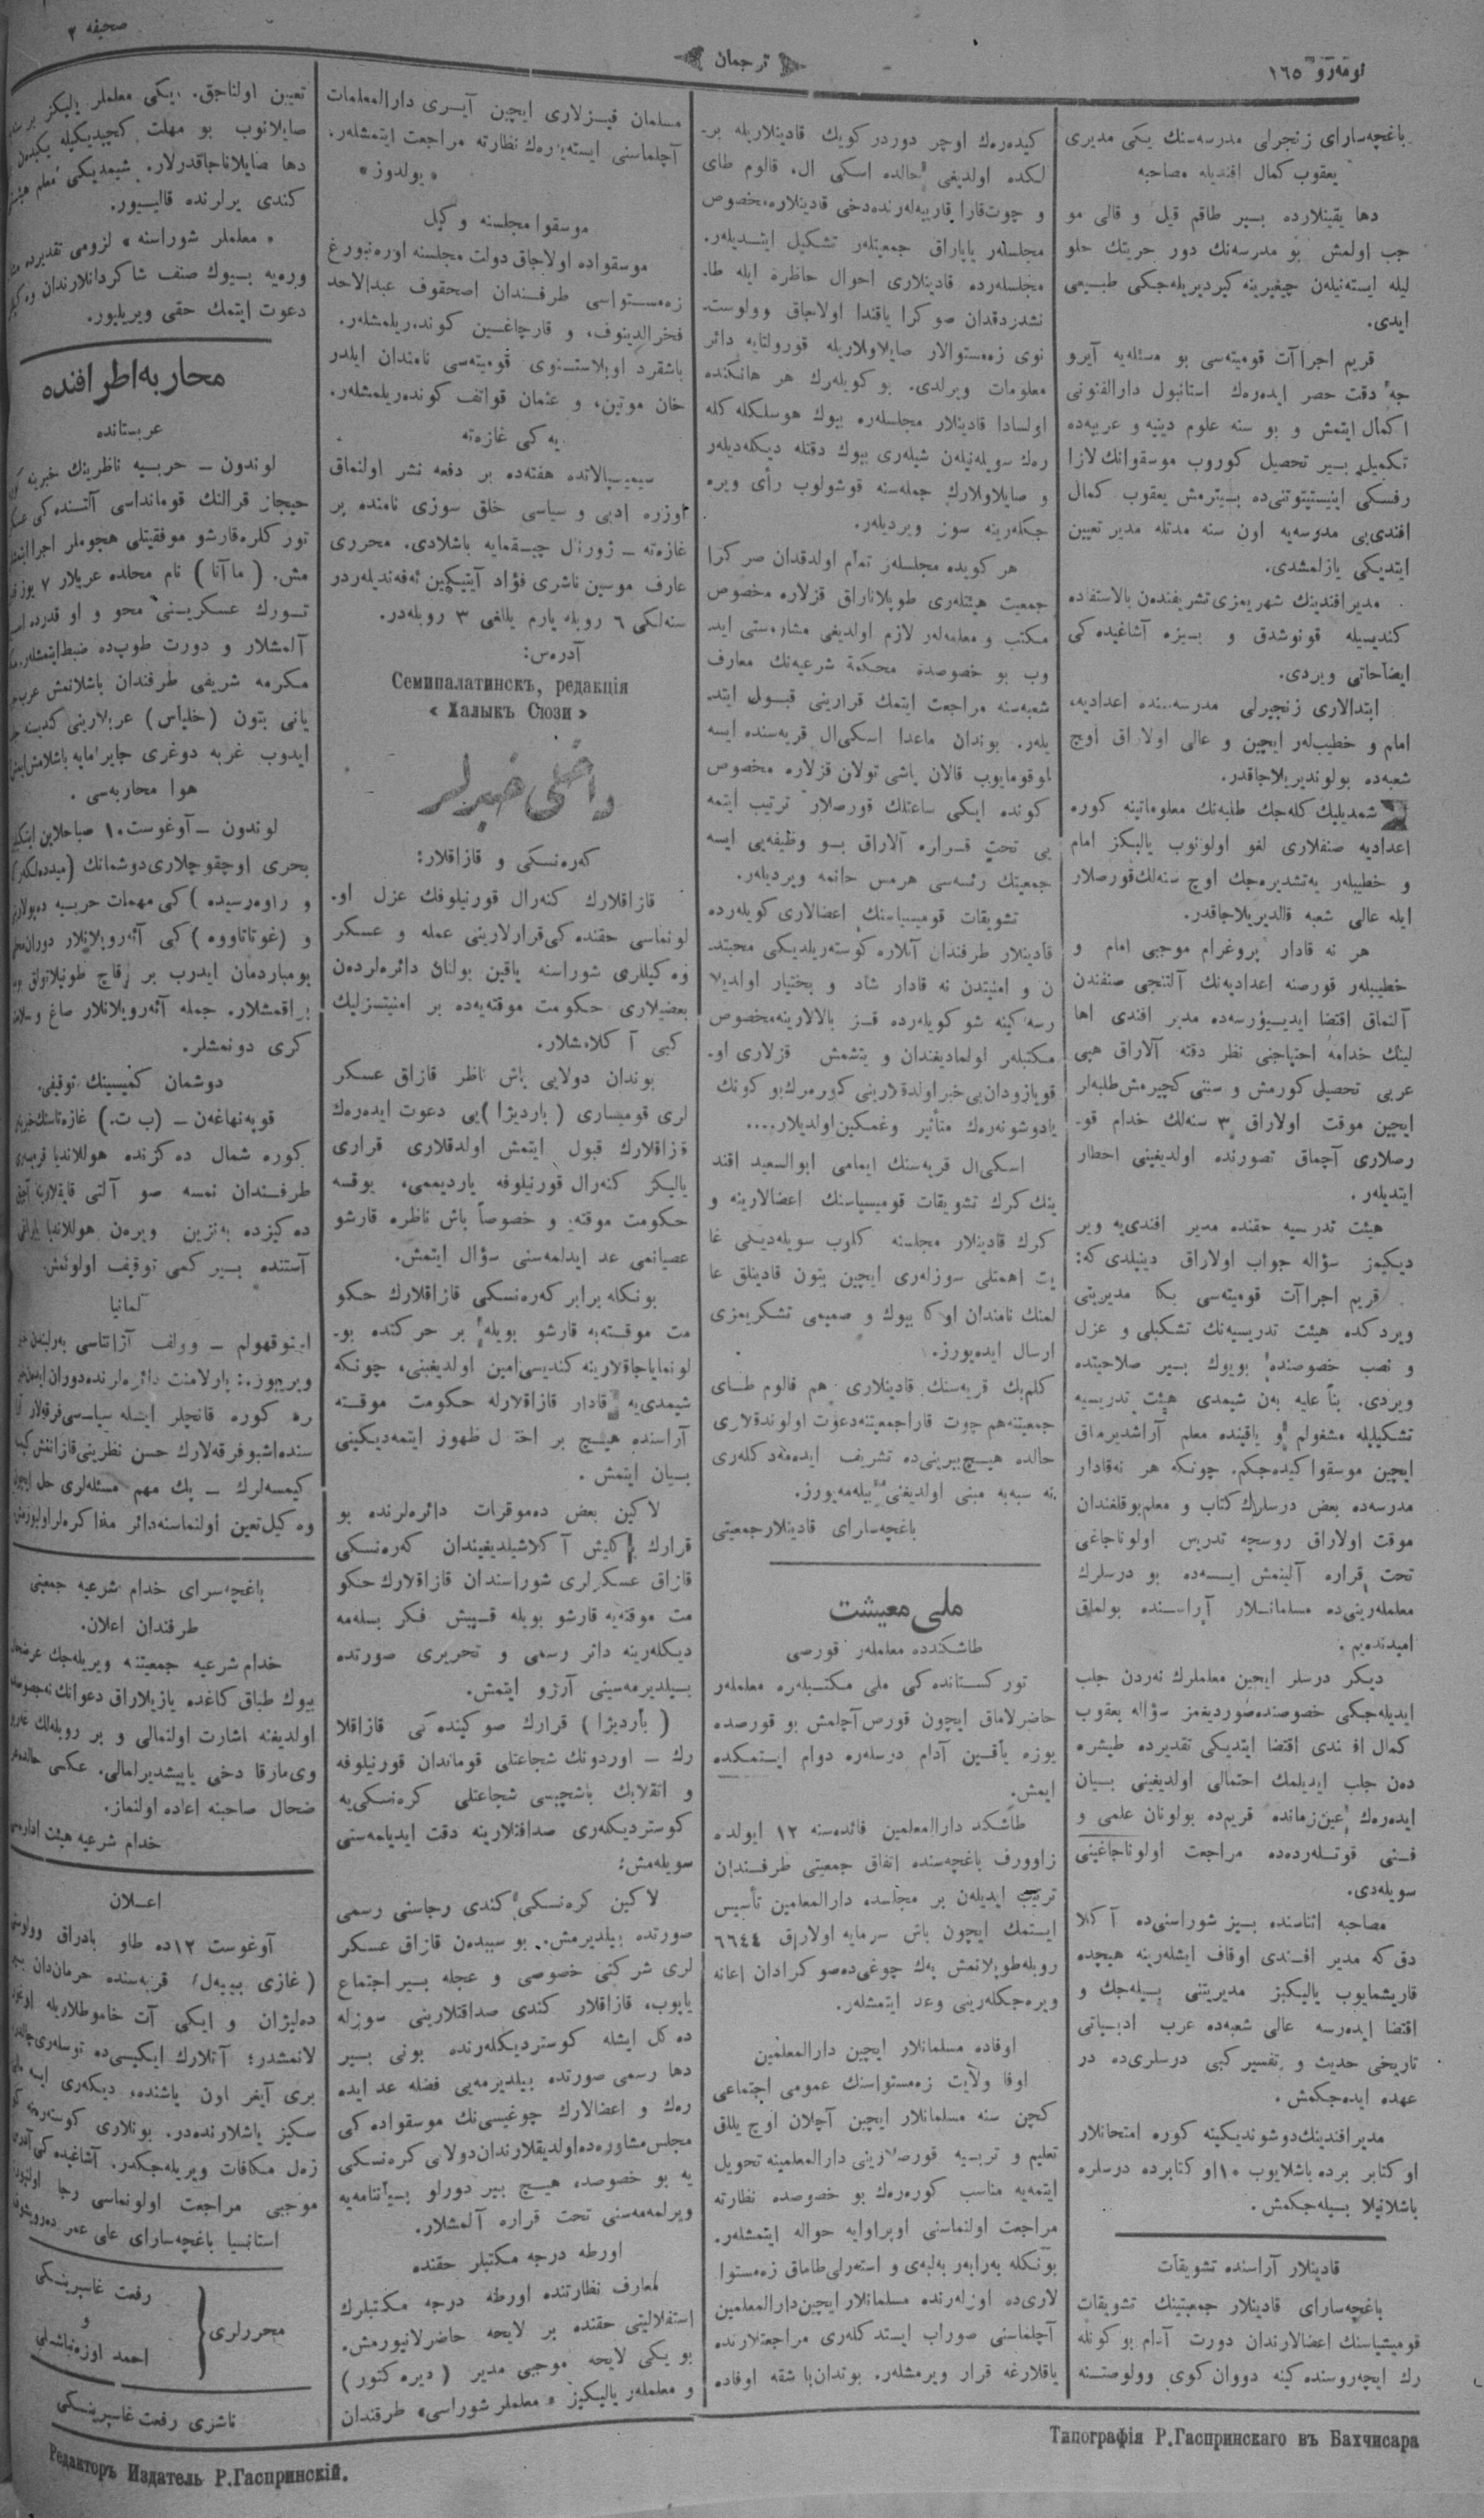 نومه‌رو ١٦٥
ترجمان
صحیفه ٢
باغچه‌سارای زنجرلی مدرسه‌سنك یكی مدیری
یعقوب كمال افندیله مصاحبه
دها یقینلارده بـیر طاقم قیل و قالی مو
جب اولمش بو مدرسه‌نك دور حریتك حلو
لیله ایسته‌نیلەن چیغیرینه كیردیریله‌جكی طبـیعی
ایدی.
قریم اجراآت قومیته‌سی بو مسئله‌یه آیرو
جه دقت حصر ایده‌رەك استانبول دارالفنونی
اكمال ایتمش و بو سنه علوم دینیه و عربیه‌ده
تكمیل بـیر تحصیل كوروب موسقوانك لازا
رفسكی اینیستیتوتی‌ده بـیترمش یعقوب كمال
افندی‌یی مدرسه‌یه اون سنه مدتله مدیر تعیین
ایتدیكی یازلمشدی.
مدیر افندینك شهریمزی تشریفندەن بالاستفاده
كندیـیله قونوشدق و بـیزه آشاغیده‌كی
ایضاحاتی ویردی.
ابتدالاری زنجیرلی مدرسه‌سنده اعدادیه،
امام و خطیب‌لەر ایچین و عالی اولاراق اوچ
شعبه‌ده بولوندیریلاجاقدر.
شمدیلیك كله‌جك طلبه‌نك معلوماتینه كوره
اعدادیه صنفلاری لغو اولونوب یالیكز امام
و خطیبلەر یه‌تشدیره‌جك اوچ سنه‌لك قورصلار
ایله عالی شعبه قالدیریلاجاقدر.
هر نه قادار پروغرام موجبی امام و
خطیبلەر قورصنه اعدادیه‌نك آلتنجی صنفندن
آلنماق اقتضا ایدیـیۇرسه‌ده مدیر افندی اها
لینك خدامه احتیاجنی نظر دقته آلاراق هپی
عربی تحصیلی كورمش و سننی كچیرمش طلبه‌لر
ایچین موقت اولاراق ٣ سنه‌لك خدام قو-
رصلاری آچماق تصورنده اولدیغینی احطار
ایتدیلەر.
هیئت تدرسیه حقنده مدیر افندی‌یه ویر
دیكیمز سؤاله جواب اولاراق دینیلدی كه:
قریم اجراآت قومیته‌سی بكا مدیریتی
ویردكده هیئت تدریسیه‌نك تشكیلی و عزل
و نصب خصوصنده بویوك بـیر صلاحیتده
ویردی. بنأ علیه بەن شیمدی هیئت تدریسیه
تشكیلیله مشغولم و یاقینده معلم آراشدیرماق
ایچین موسقوا كیده‌جكم. چونكه هر نه‌قادار
مدرسه‌ده بعض درسلرك كتاب و معلم یوقلغندان
موقت اولاراق روسچه تدریس اولوناجاغی
تحت قراره آلینمش ایـسه‌ده بو درسلرك
معلملەرینی‌ده مسلمانـلار آراسـنده بولماق
امیدنده‌یم.
دیكر درسلر ایچین معلملرك نه‌ردن جلب
ایدیله‌جكی خصوصنده صوردیغمز سؤاله یعقوب
كمال افندی اقتضا ایتدیكی تقدیرده طیشره
دەن جلب ایدیلمك احتمالی اولدیغینی بـیان
ایده‌رەك عین زمانده قریم‌ده بولونان علمی و
فـنی قوتـله‌رده‌ده مراجعت اولوناجاغینی
سویله‌دی.
مصاحبه اثناسنده بـیز شوراسنی‌ده آكلا
دق كه مدیر افـندی اوقاف ایشلەرینه هیچده
قاریشمایوب یالیكیز مدیریتنی بـیله‌جك و
اقتضا ایده‌رسه عالی شعبه‌ده عرب ادبـیاتی
تاریخی حدیث و تفسیر كبی درسلری‌ده در
عهده ایده‌جكمش.
مدیر افندینك دوشوندیكینه كوره امتحانلار
اوكتابر برده باشلایوب ١٠ اوكتابرده درسلره
باشلانیلا بـیله‌جكمش.
قادینلار آراسنده تشویقات
باغچه‌سارای قادینلار جمعیتینك تشویقات
قومیـسیاسنك اعضالارندان دورت آدام بو كونله
رك ایچه‌روسنده كینه دووان كوی وولوصتـنه
كیده‌رەك اوچر دوردر كویك قادینلاریله بر-
لكده اولدیغی حالده اسكی ال، قالوم طای
و چوت‌قارا قاریه‌لەرنده‌دخی قادینلاره مخصوص
مجلسلەر یاپاراق جمعیتلەر تشكیل ایتـدیلەر.
مجلسلەرده قادینلاری احوال حاظرهٔ ایله طا-
نشدردقدان صوكرا یاقندا اولاجاق وولوست-
نوی زه‌مستوالار صایلاولاریله قورولتایه دائر
معلومات ویرلدی. بو كویلەرك هر هانكنده
اولسادا قادینلار مجلسلەره بیوك هوسلكله كله
رەك سویله‌نیلەن شیلەری بیوك دقتله دیكله‌دیلەر
و صایلاولارك جمله‌سنه قوشولوب رأی ویره
جكلەرینه سوز ویردیلەر.
هر كویده مجلسلەر تمام اولدقدان صركرا
جمعیت هیئتلەری طوپلاناراق قزلاره مخصوص
مكتب و معلمه‌لەر لازم اولدیغی مشاره‌ستی ایده
وب بو خصوصدهٔ محكمهٔ شرعیه‌نك معارف
شعبه‌سنه مراجعت ایتمك قرارینی قبـول ایتد-
یلەر. بوندان ماعدا اسكی‌ال قریه‌سنده ایسه
اوقومایوب قالان یاشی تولان قزلاره مخصوص
كونده ایكی ساعتلك قورصلار ترتیب ایتمه
یی تحت قـراره آلاراق بـو وظیفه‌یی ایسه
جمعیتك رئسه‌سی هرمس خانمه ویردیلەر.
تشویقات قومیسیاسنك اعضالاری كویلەرده
قادینلار طرفندان آنلاره كوسته‌ریلدیكی محبتد-
ن و امنیتدن نه قادار شاد و بختیار اولدیلا
رسه كینه شو كویلەرده قـز بالالارینه مخصوص
مكتبلەر اولمادیغندان و یتشمش قزلاری او-
قویازودان بی‌خبر اولدقلارینی كورمرك بو كونك
یادوشونه‌رەك متأثیر و غمكین اولدیلار....
اسكی‌ال قریه‌سنك ایمامی ابوالسعید افند
ینك كرك تشویقات قومیسیاسنك اعضالارینه و
كرك قادینلار مجلسنه كلوب سویله‌دیكی غا
یت اهمتلی سوزلەری ایچین بتون قادینلق عا
لمنك نامندان اوكا بیوك و صمیمی تشكریمزی
ارسال ایده‌یورز.
كلم‌بك قریه‌سنك قادینلاری هم قالوم طـای
جمعیتنه هم چوت قاراجمعیتنه دعوت اولوندقلاری
حالده هیـچ بیرینی‌ده تشریف ایده‌مه‌دكلەری
نه سببه مبنی اولدیغنی بیله‌مه‌یورز.
باغچه‌سارای قادینلار جمعیتی
ملی معیشت
طاشكندده معلملەر قورصی
توركستانده‌كی ملی مكتـبلەره معلملەر
حاضرلاماق ایچون قورص آچلمش بو قورصده
یوزه یاقـین آدام درسلەره دوام ایـتمكده
ایمش.
طاشكند دارالمعلمین فائده‌سنه ١٢ ایولده
زاوورف باغچه‌سنده اتفاق جمعیتی طرفـندان
ترتیب ایدیلەن بر مجلسده دارالمعلمین تأسیس
ایـتمك ایچون باش سرمایه اولاراق ٦٦٤٤
روبله طوپلانمش یەك چوغی‌ده صوكرادان اعانه
ویره‌جكلەرینی وعد ایتمشلەر.
اوفاده مسلمانلار ایچین دارالمعلمین
اوفا ولایت زه‌مستواسنك عمومی اجتماعی
كچن سنه مسلمانلار ایچین آچلان اوچ یللق
تعلیم و تربـیه قورصلارینی دارالمعلمینه تحویل
ایتمه‌یه مناسب كوره‌رەك بو خصوصده نظارته
مراجعت اولنماسنی اوپراوایه حواله ایتمشلەر.
بونكله به‌رابه‌ر به‌لبه‌ی و استه‌رلی‌طاماق زه‌مستوا
لاری‌ده اوزلەرنده مسلمانلار ایچین دارالمعلمین
آچلماسنی صوراب ایستدكلەری مراجعتلارنده
یاقلارغه قرار ویرمشلەر. بوتدان‌باشقه اوفاده
مسلمان قیـزلاری ایچین آیـری دارالمعلمات
آچلماسنی ایسته‌یه‌رەك نظارته مراجعت ایتمشلەر.
«یولدوز»
موسقوا مجلسنه وكیل
موسقواده اولاجاق دولت مجلسنه اوره‌نبورغ
زه‌مستـواسی طرفـندان اصحقوف عبدالاحد
فخرالدینوف، و قارچاغـین كونده‌ریلمشلەر.
باشقرد اوبلاستـنوی قومیته‌سی نامندان ایلدر
خان موتین، و عثمان قواتف كونده‌ریلمشلەر.
یه كی غازه‌ته
سیمیـپالاتده هفته‌ده بر دفعه نشر اولنماق
اوزره ادبی و سیاسی خلق سوزی نامنده بر
غازه‌ته – ژورنال چیـقمایه باشلادی. محرری
عارف موسین ناشری فؤاد آیتیكین ئه‌فه‌ندیلەردر
سنه‌لكی ٦ روبله یارم یللغی ٣ روبله‌در.
آدره‌س:
Семипалатинскъ, редакція
«Халыкъ Сюзи»
داخلی خبرلر
كه‌ره‌نسكی و قازاقلار:
قازاقلارك كنه‌رال قورنیلوفك عزل او-
لونماسی حقنده‌كی قرارلارینی عمله و عسكر
وه‌كیللری شوراسنه یاقین بولنان دائره‌لردەن
بعضیلاری حكومت موقتیه‌ده بر امنیتسزلیك
كبی آكلامشلار.
بوندان دولایی باش ناظر قازاق عسكر
لری قومیساری (باردیژا)یی دعوت ایده‌رەك
قزاقلارك قبول ایتمش اولدقلاری قراری
یالیكز كنه‌رال قورنیلوفه یاردیممی، یوقسه
حكومت موقتیه و خصوصاً باش ناظره قارشو
عصیانمی عد ایدلمه‌سنی سؤال ایتمش.
بونكله برابر كه‌ره‌نسكی قازاقلارك حكو
مت موقـته‌یه قارشو بویله بر حركتده بو-
لونمایاجاقلارینه كندیسی امین اولدیغینی، چونكه
شیمدی‌یه قادار قازاقلارله حكومت موقـته
آراسنده هیـچ بر اختلال ظهور ایتمه‌دیكینی
بـیان ایتمش.
لاكین بعض ده‌موقرات دائره‌لرنده بو
قرارك یاكلیش آكلاشیلدیغیندان كه‌ره‌نسكی
قازاق عسكرلری شوراسندان قازاقلارك حكو
مت موقتیه قارشو بویله قـپیش فكر بسله‌مه
دیكلەرینه دائر رسمی و تحریری صورتده
بـیلدیرمه‌سینی آرزو ایتمش.
(باردیژا) قرارك صوكینده‌كی قازاقلا
رك – اوردونك شجاعتلی قوماندان قورنیلوفه
و انقلابك باشچیسی شجاعتلی كره‌نسكی‌یه
كوستردیكلەری صداقتلارینه دقت ایدیلمه‌ستی
سویله‌مش؛
لاكین كره‌نسكی كندی رجاسنی رسمی
صورتده بیلدیرمش. بو سببدەن قازاق عسكر
لری شركتی خصوصی و عجله بـیر اجتماع
یاپوب، قازاقلار كندی صداقتلارینی سوزله
ده‌كل ایشله كوستردیكلەرنده بونی بـیر
دها رسمی صورتده بیلدیرمه‌یی فضله عد ایده
رەك و اعضالارك چوغیسی‌نك موسقواده‌كی
مجلس مشاوره‌ده اولدیقلارندان دولانی كره‌نسكی
یه بو خصوصده هیـچ بـیر دورلو بـیاننامه‌یه
ویرلمه‌مه‌سنی تحت قراره آلمشلار.
اورطه درجه مكتبلر حقنده
لمعارف نظارتنده اورطه درجه مكتبلرك
استقلالیتی حقنده بر لایحه حاضرلانیورمش.
بو یكی لایحه موجبی مدیر (دیره‌كتور)
و معلملەر یالیكیز «معلملر شوراسی» طرفندان
تعیین اولناجق. یكی معلملر یالیكز بر سنه
صایلانوب بو مهلت كچیدیكیله یكیدەن
دها صایلاناجاقدرلار. شیمدیكی معلم هیئتی
كندی یرلرنده قالیـیور.
«معلملر شوراسنه» لزومی تقدیرده
ویره‌یه بـیوك صنف شاكردانلارندان وه‌كیل
دعوت ایتمك حقی ویریلیور.
محاربه اطرافنده
عربستانده
لوندون – حربـیه ناظرینك خبرینه
حیجاز قرالنك قوماندا‌سی آلتـنده‌كی عسكر
تورکلره قارشو موفقیتلی هجوملر اجرا ایتـ
مش. (ماآنا) نام محلده عربلار ٧ یوز
تـورك عسكریـنی محو و او قدرده اسیر
آلمشلار و دورت طوپ‌ده ضبط ایتمشلەر.
مكرمه شریفی طرفندان باشلانمش عرب
یانی بتون (خلیاس) عربلارینی كندیسنه
ایدوب غربه دوغری جایرامایه باشلامش
هوا محاربه‌سی.
لوندون – آوغوست ١٠ صباحلاین
بحری اوچقوچلاری دوشمانك (میدده‌لكه‌ر)
و راوه‌رسیده) كی مهمات حربـیه ده‌پولارنی
و (غوتاتاووه) كی آئه‌روپلانلار دوران
بومباردمان ایدرب بر قاچ طونیلاتولق
براقمشلار. جمله آئه‌روپلانلار صاغ و سلامت
كری دونمشلر.
دوشمان كمیسینك توقیفی.
قوپه‌نهاغەن – (ب ت.) غازه‌تاسنك
كوره شمال ده‌كزنده هوللاندیا
طرفـندان نمسه صو آلتی
ده‌كیزده به‌نزین ویرەن هوللاندیا بایراغی
آستنده بـیر كمی توقیف اولونمش.
آلمانیا
استوقهولم – وولف آژانتاسی به‌رلیندەن
ویریبورز: پارلامنت دائره‌لرنده دوران
ره كوره قانچلر ایشله سیاسی فرقه‌لار
سنده اشبو فرقه‌لارك حسن نظرینی قازانمش
كیمسه‌لرك – یك مهم مسئله‌لری حل ایچون
وه‌كیل تعیین اولنماسنه دائر مذاكره‌لر اولیورمش
باغچه سرای خدام شرعیه جمعیتی
طرفندان اعلان.
خدام شرعیه جمعیتنه ویریله‌جك عرضحال
بیوك طباق كاغده یازیلاراق دعوانك نه خصوصده
اولدیغنه اشارت اولنمالی و بر روبله‌لك
وی‌مارقا دخی یاپیشدیرلمالی. عكسی حالده
ضحال صاحبنه اعاده اولنماز.
خدام شرعیه هیئت اداره‌سی
اعـلان
آوغوست ١٢ده طاو بادراق وولوستی
(غازی بییه‌ل) قریه‌سنده خرمان‌دان
ده‌لیژان و ایكی آت خاموطلاریله
لانمشدر؛ آتلارك ایكیـی‌ده توسلەری
بری آیغر اون یاشنده، دیكه‌ری ایسه
سكیز یاشلارنده‌در. بونلاری كوسته‌رەنه
زه‌ل مكافات ویریله‌جكدر. آشاغیده‌كی آدرس
موجبی مراجعت اولونماسی رجا اولنور.
استانسیا باغچه‌سارای علی عمر ده‌رویش
محررلری
رفعت غاسپرینسكی
و
احمد اوزه‌نباشلی
ناشری رفعت غاسپرینسكی
Типографія Р.Гаспринскаго въ Бахчисара
Редакторъ Издатель Р.Гаспринскій.